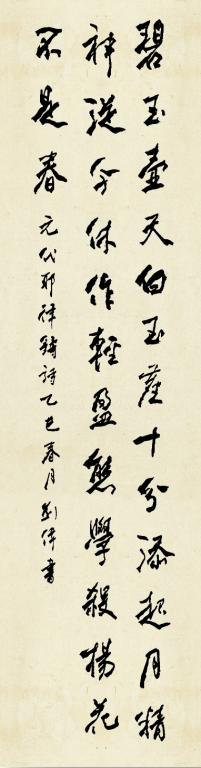 碧玉壺天白玉塵十分添起月精
神從今休作輕盈態學殺楊花
不是春 元代耶律鑄詩乙巳春月劉偉書